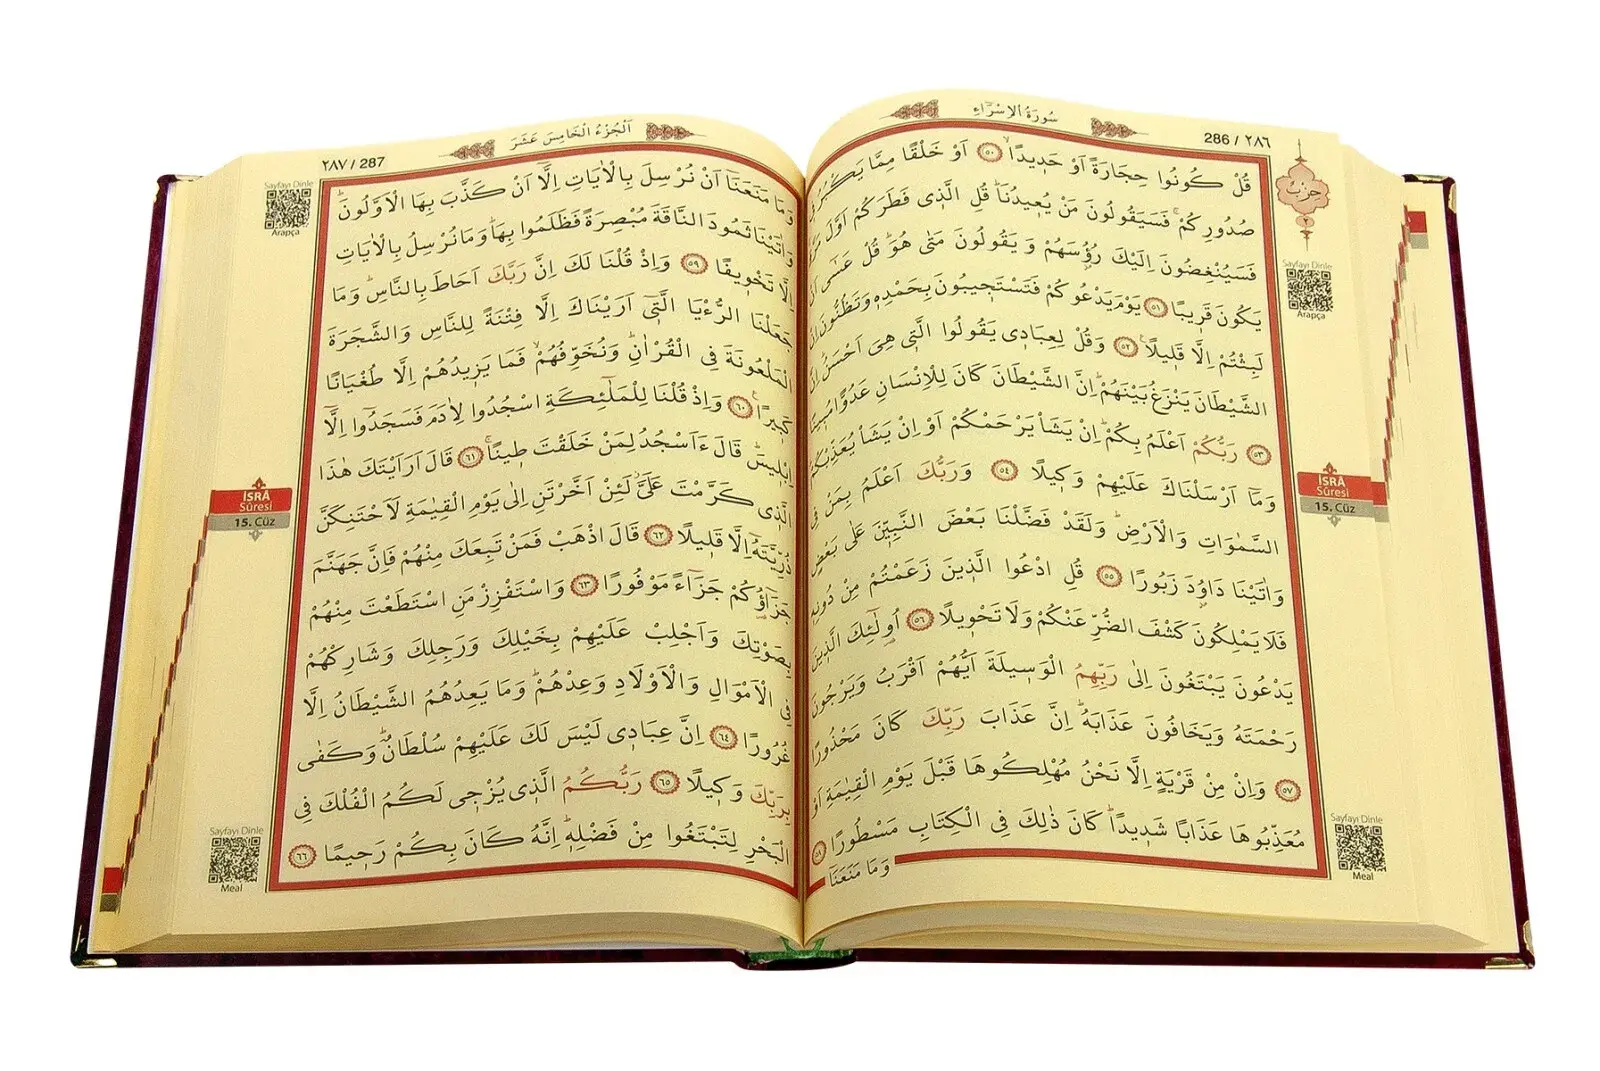 سُورَةُ الْاِسْرَاءِ
286 / ٢٨٦
قُلْ كُونُوا حِجَارَةً اَوْ حَدِيدًاۙ ٥٠ اَوْ خَلْقًا مِمَّا يَكْبُرُ فِى
صُدُورِكُمْۚ فَسَيَقُولُونَ مَنْ يُعِيدُنَاۜ قُلِ الَّذِى فَطَرَكُمْ اَوَّلَ مَرَّةٍۚ
فَسَيُنْغِضُونَ اِلَيْكَ رُؤُسَهُمْ وَيَقُولُونَ مَتٰى هُوَۜ قُلْ عَسٰٓى اَنْ
يَكُونَ قَرِيبًا ٥١ يَوْمَ يَدْعُوكُمْ فَتَسْتَجِيبُونَ بِحَمْدِهِ وَتَظُنُّونَ اِنْ
لَبِثْتُمْ اِلَّا قَلِيلًا۟ ٥٢ وَقُلْ لِعِبَادِى يَقُولُوا الَّتِى هِىَ اَحْسَنُۜ اِنَّ
الشَّيْطَانَ يَنْزَغُ بَيْنَهُمْۜ اِنَّ الشَّيْطَانَ كَانَ لِلْاِنْسَانِ عَدُوًّا مُبِينًا
٥٣ رَبُّكُمْ اَعْلَمُ بِكُمْۜ اِنْ يَشَأْ يَرْحَمْكُمْ اَوْ اِنْ يَشَأْ يُعَذِّبْكُمْۜ
وَمَٓا اَرْسَلْنَاكَ عَلَيْهِمْ وَكِيلًا ٥٤ وَرَبُّكَ اَعْلَمُ بِمَنْ فِى
السَّمٰوَاتِ وَالْاَرْضِۜ وَلَقَدْ فَضَّلْنَا بَعْضَ النَّبِيّٖنَ عَلٰى بَعْضٍ
وَاٰتَيْنَا دَاوُ۫دَ زَبُورًا ٥٥ قُلِ ادْعُوا الَّذِينَ زَعَمْتُمْ مِنْ دُونِهِ
فَلَا يَمْلِكُونَ كَشْفَ الضُّرِّ عَنْكُمْ وَلَا تَحْوِيلًا ٥٦ اُو۬لٰٓئِكَ الَّذِينَ
يَدْعُونَ يَبْتَغُونَ اِلٰى رَبِّهِمُ الْوَسِيلَةَ اَيُّهُمْ اَقْرَبُ وَيَرْجُونَ
رَحْمَتَهُ وَيَخَافُونَ عَذَابَهُۜ اِنَّ عَذَابَ رَبِّكَ كَانَ مَحْذُورًا
٥٧ وَاِنْ مِنْ قَرْيَةٍ اِلَّا نَحْنُ مُهْلِكُوهَا قَبْلَ يَوْمِ الْقِيٰمَةِ اَوْ
مُعَذِّبُوهَا عَذَابًا شَدِيدًاۜ كَانَ ذٰلِكَ فِى الْكِتَابِ مَسْطُورًا ٥٨
وَمَا مَنَعَنَا
حزب
٢
Sayfayı Dinle
Arapça
İSRÂ
Sûresi
15. Cüz
Sayfayı Dinle
Meal
اَلْجُزْءُ الْخَامِسَ عَشَرَ
٢٨٧ / 287
وَمَا مَنَعَنَٓا اَنْ نُرْسِلَ بِالْاٰيَاتِ اِلَّٓا اَنْ كَذَّبَ بِهَا الْاَوَّلُونَۜ
وَاٰتَيْنَا ثَمُودَ النَّاقَةَ مُبْصِرَةً فَظَلَمُوا بِهَاۜ وَمَا نُرْسِلُ بِالْاٰيَاتِ
اِلَّا تَخْوِيفًا ٥٩ وَاِذْ قُلْنَا لَكَ اِنَّ رَبَّكَ اَحَاطَ بِالنَّاسِۜ وَمَا
جَعَلْنَا الرُّءْيَا الَّتِٓى اَرَيْنَاكَ اِلَّا فِتْنَةً لِلنَّاسِ وَالشَّجَرَةَ
الْمَلْعُونَةَ فِى الْقُرْاٰنِۜ وَنُخَوِّفُهُمْۙ فَمَا يَزِيدُهُمْ اِلَّا طُغْيَانًا
كَبِيرًا۟ ٦٠ وَاِذْ قُلْنَا لِلْمَلٰٓئِكَةِ اسْجُدُوا لِاٰدَمَ فَسَجَدُٓوا اِلَّٓا
اِبْلِيسَۜ قَالَ ءَاَسْجُدُ لِمَنْ خَلَقْتَ طِينًاۚ ٦١ قَالَ اَرَاَيْتَكَ هٰذَا
الَّذِى كَرَّمْتَ عَلَىَّۘ لَئِنْ اَخَّرْتَنِ اِلٰى يَوْمِ الْقِيٰمَةِ لَاَحْتَنِكَنَّ
ذُرِّيَّتَهُٓ اِلَّا قَلِيلًا ٦٢ قَالَ اذْهَبْ فَمَنْ تَبِعَكَ مِنْهُمْ فَاِنَّ جَهَنَّمَ
جَزَٓاؤُ۬كُمْ جَزَٓاءً مَوْفُورًا ٦٣ وَاسْتَفْزِزْ مَنِ اسْتَطَعْتَ مِنْهُمْ
بِصَوْتِكَ وَاَجْلِبْ عَلَيْهِمْ بِخَيْلِكَ وَرَجِلِكَ وَشَارِكْهُمْ
فِى الْاَمْوَالِ وَالْاَوْلَادِ وَعِدْهُمْۜ وَمَا يَعِدُهُمُ الشَّيْطَانُ اِلَّا
غُرُورًا ٦٤ اِنَّ عِبَادِى لَيْسَ لَكَ عَلَيْهِمْ سُلْطَانٌۜ وَكَفٰى
بِرَبِّكَ وَكِيلًا ٦٥ رَبُّكُمُ الَّذِى يُزْجِى لَكُمُ الْفُلْكَ فِى
الْبَحْرِ لِتَبْتَغُوا مِنْ فَضْلِهِۜ اِنَّهُ كَانَ بِكُمْ رَحِيمًا ٦٦
Sayfayı Dinle
Arapça
İSRÂ
Sûresi
15. Cüz
Sayfayı Dinle
Meal